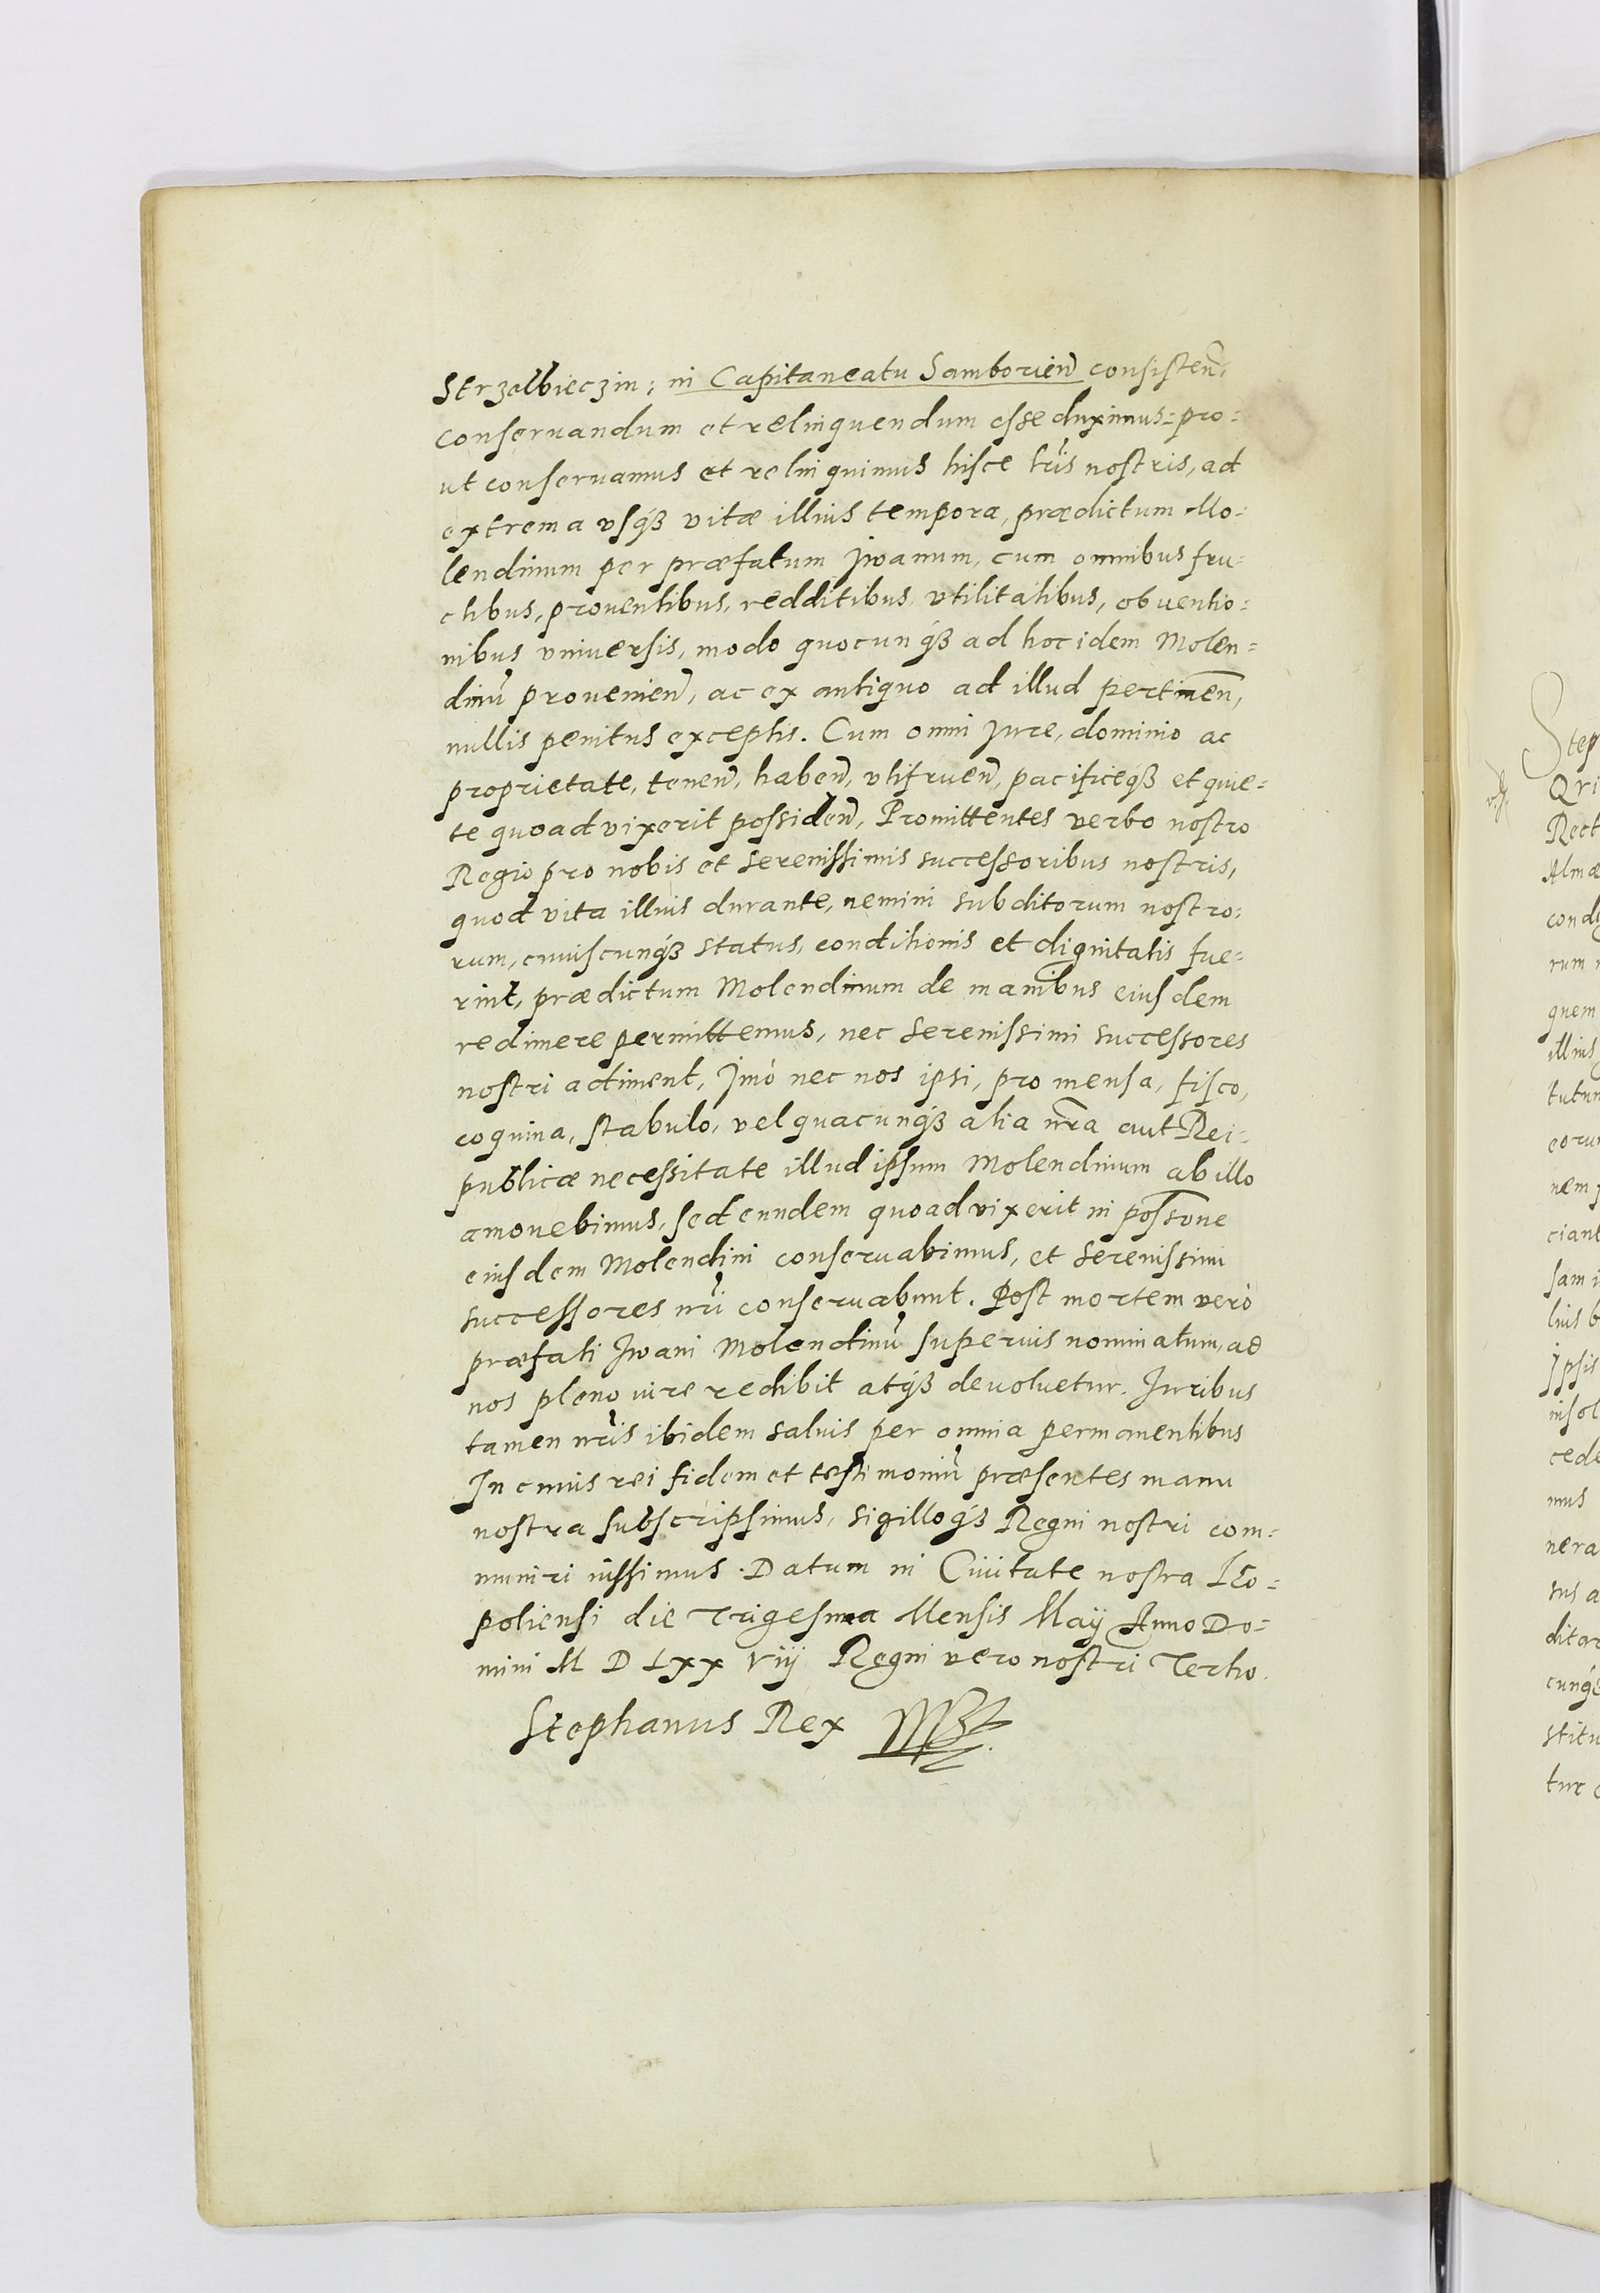 Strzalbieczin; in Capitaneatu Samborien̄ consisten̄,
conseruandum et relinquendum esse duximus= pro=
ut conseruamus et relinquimus hisce lr̄is nostris, ad
extrema vsqʒ vitæ illius tempora, prædictum Mo=
lendinum per præfatum Jwanum, cum omnibus fru=
ctibus, prouentibus, redditibus, vtilitatibus, obuentio=
nibus vniuersis, modo quocunqʒ ad hoc idem Molen=
dinū prouenien̄, ac ex antiquo ad illud pertinen̄,
nullis penitus exceptis. Cum omni jure, dominio ac
proprietate, tenen̄, haben̄, vtifruen̄, pacificeqʒ et quie=
te quoad vixerit possiden̄, Promittentes verbo nostro
Regio pro nobis et serenissimis successoribus nostris,
quod vita illius durante, nemini subditorum nostro=
rum, cuiuscunqʒ status, conditionis et dignitatis fue=
rint, prædictum Molendinum de manibus eiusdem
redimere permittemus, nec serenissimi successores
nostri adiment, Jmò nec nos ipsi, pro mensa, fisco,
coquina, stabulo, vel quacunqʒ alia nr̄a aut Rei=
publicæ necessitate illud ipsum Molendinum ab illo
amouebimus, sed eundem quoad vixerit in possone
eiusdem Molendini conseruabimus, et serenissimi
successores nr̄i conseruabunt. Post mortem verò
præfati Jwani Molendinū superius nominatum, ad
nos pleno iure redibit atqʒ deuoluetur. Juribus
tamen nr̄is ibidem saluis per omnia permanentibus
In cuius rei fidem et testimoniū præsentes manu
nostra subscripsimus, sigilloqʒ Regni nostri com=
muniri iussimus. Datum in Ciuitate nostra Leo=
poliensi die Trigesima Mensis Maij Anno Do=
mini M D Lxx viij Regni vero nostri Tertio.
Stephanus Rex
Step
Qri
Rect
Almæ
condi
rum
quem
illius
tutum
eorum
nem
ciant
sam i
lius b
Jpsis
insol
cede
mus
nera
sus a
ditor
cunqʒ
stitu
tur c